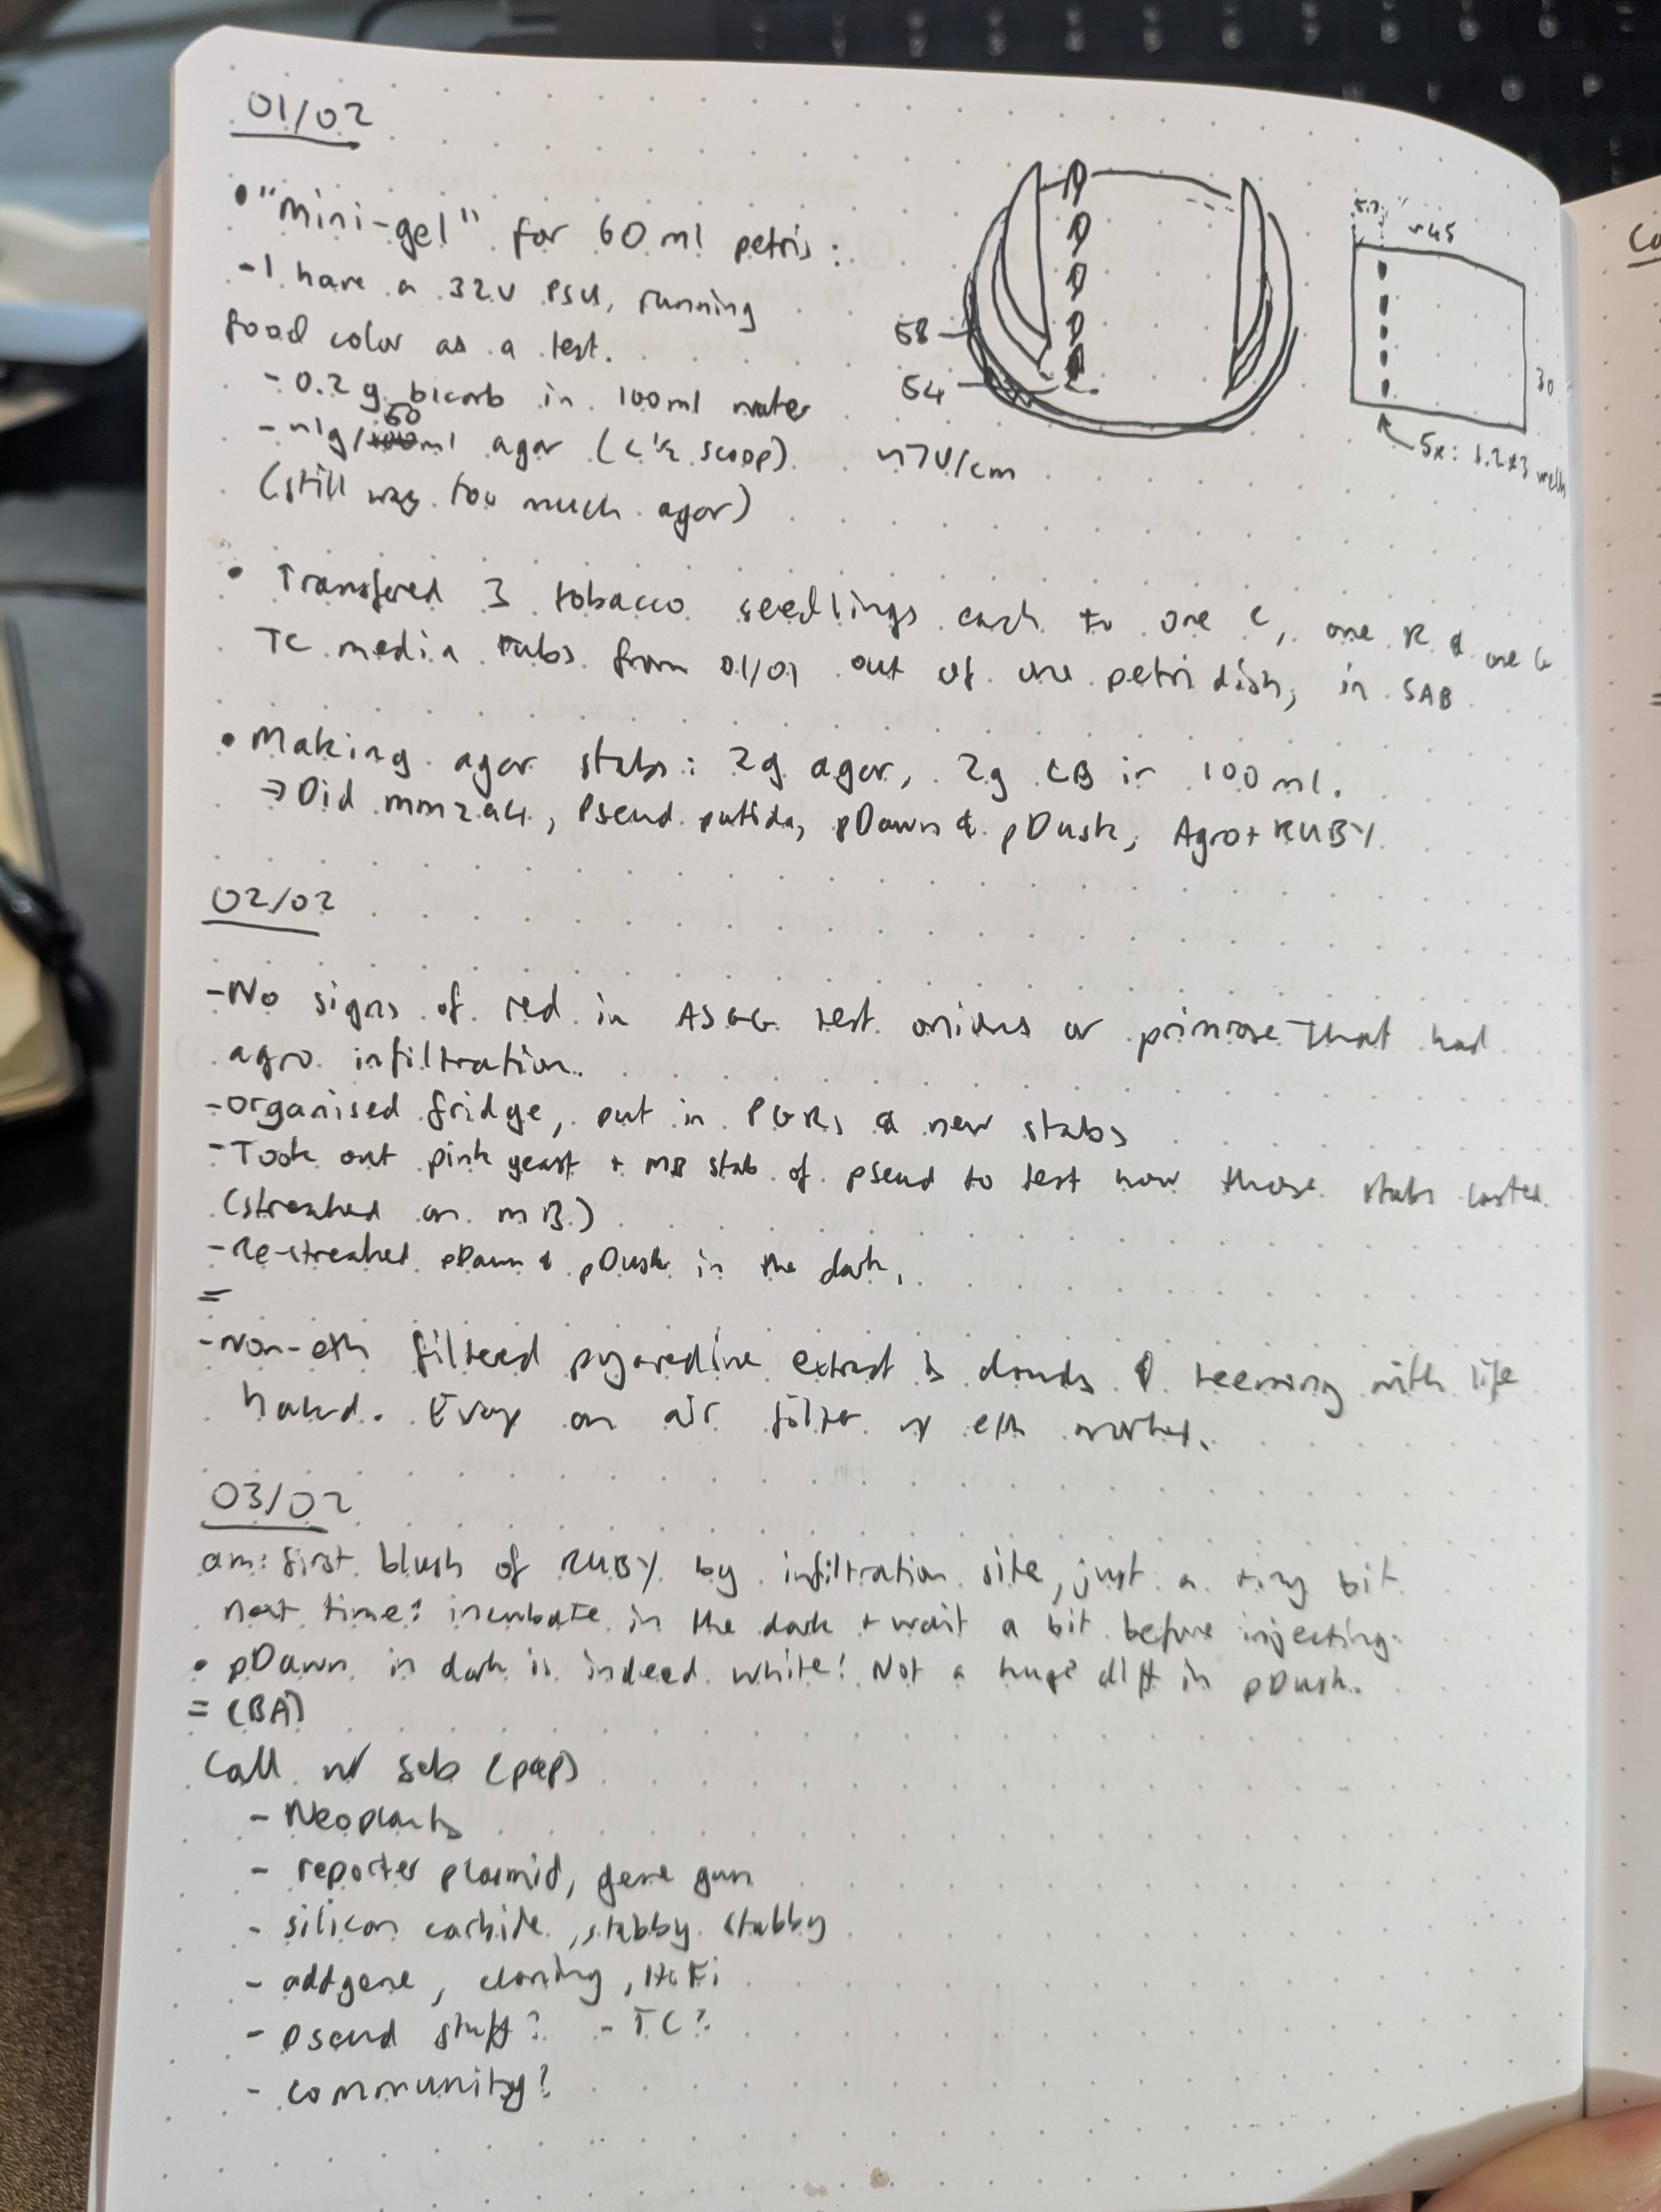 01/02
• "mini-gel" for 60 ml petris:
- I have a 32V PSU, running
food color as a test.
- 0.2 g bicarb in 100ml water
- ~1g/50ml agar (< 1/2 scoop) ~7V/cm
(still way too much agar)
58
54
~45
30
5x: 1.2*3 wells
• Transfered 3 tobacco seedlings each to one C, one R & one G
TC media tubs from 01/01 out of one petri dish, in SAB
• Making agar stabs: 2g agar, 2g LB in 100ml.
→ Did mm294, Pseud. putida, pDawn & pDusk, Agro+RUBY.
02/02
- No signs of red in test onions or primrose that had
agro infiltration.
- organised fridge, put in PGRs & new stabs
- Took out pink yeast + MB stab of pseud to test how those stabs lasted.
(streaked on MB.)
- Re-streaked pDawn & pDusk in the dark.
=
- Non-eth filtered extract is cloudy & teeming with life
Evap on air filter w eth worked.
03/02
am: first blush of RUBY by infiltration site, just a tiny bit
next time: incubate in the dark + wait a bit before injecting.
• pDawn in dark is indeed white! Not a huge diff in pDusk.
= (BA)
Call w/ Seb (pep)
- Neoplants
- reporter plasmid, gene gun
- silicon carbide, stabby stabby
- addgene, cloning, HiFi
- pseud stuff? - TC?
- community?
Co